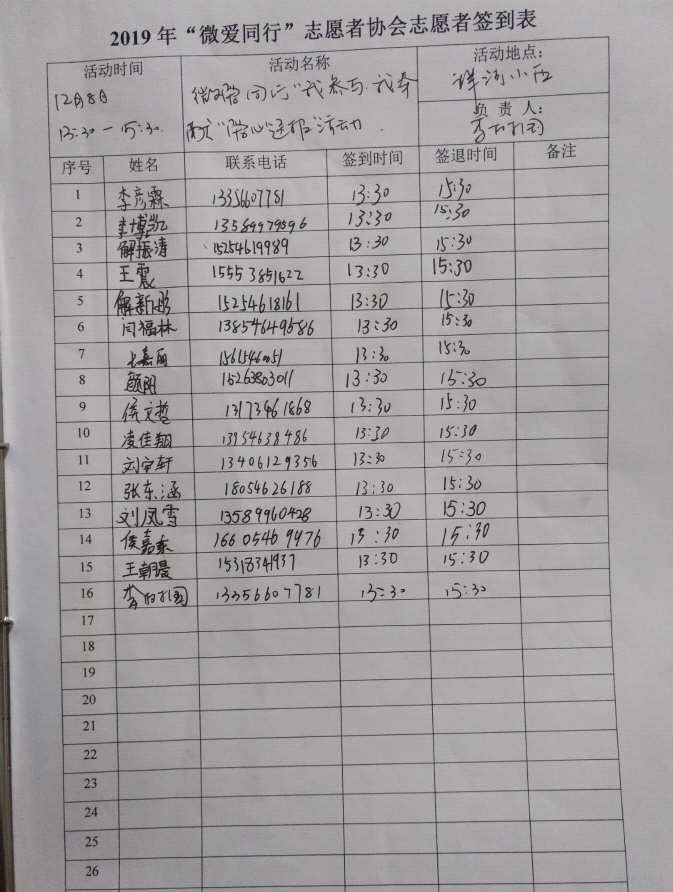 2019 年“微爱同行”志愿者协会志愿者签到表
活动时间 活动名称 活动地点：
12月8日 微爱同行“我参与 我奉 祥河小区
13:30 — 15:30 献”活动 负 责 人：
序号 姓名 联系电话 签到时间 签退时间 备注
1 李彦霖 13356607781 13:30 15:30
2 李博凯 13589979596 13:30 15:30
3 解振清 15254619989 13:30 15:30
4 王震 15553851622 13:30 15:30
5 解新彤 15254618161 13:30 15:30
6 闫福林 13854649586 13:30 15:30
7 13:30 15:30
8 颜阳 15263803011 13:30 15:30
9 侯文哲 13173461868 13:30 15:30
10 凌佳翔 13954638486 13:30 15:30
11 刘宇轩 13406129356 13:30 15:30
12 张东涵 18054626188 13:30 15:30
13 刘凤雪 13589960428 13:30 15:30
14 侯嘉泰 16605469476 13:30 15:30
15 王朝晨 15318341937 13:30 15:30
16 13356607781 13:30 15:30
17
18
19
20
21
22
23
24
25
26